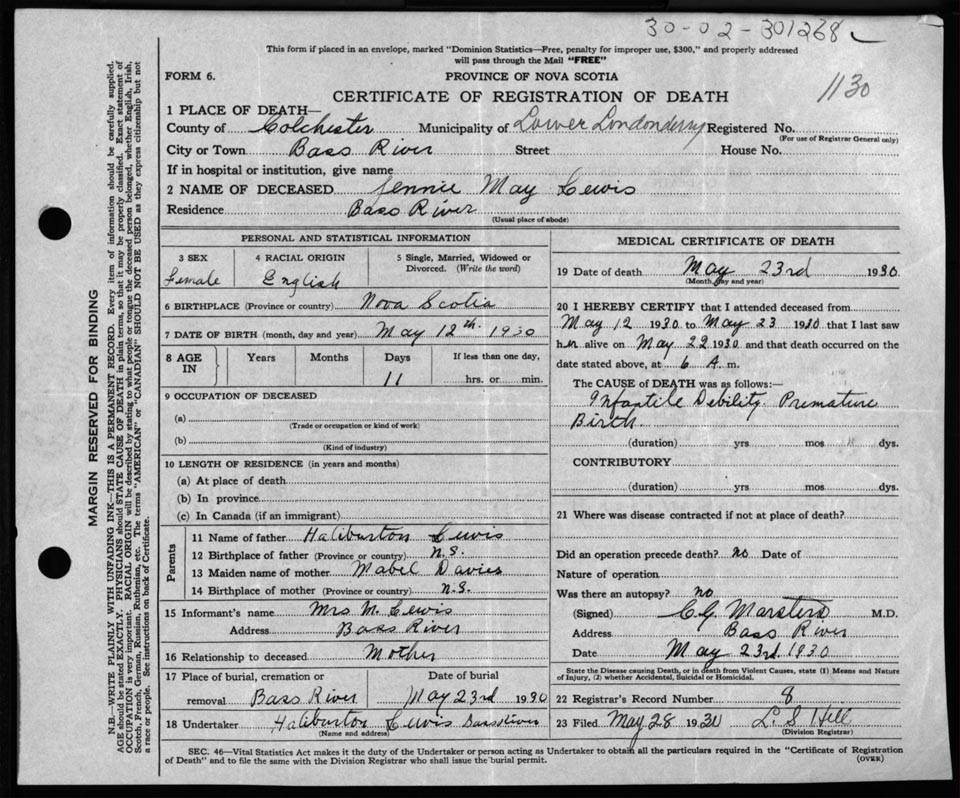 30-02-301268
This form if placed in an envelope, marked "Dominion Statistics—Free, penalty for improper use, $300," and properly addressed
will pass through the Mail "FREE"
FORM 6.
PROVINCE OF NOVA SCOTIA
CERTIFICATE OF REGISTRATION OF DEATH
1130
1 PLACE OF DEATH—
County of Colchester Municipality of Lower Londonderry Registered No.
(For use of Registrar General only)
City or Town Bass River Street House No.
If in hospital or institution, give name
2 NAME OF DECEASED Jennie May Lewis
Residence Bass River
(Usual place of abode)
PERSONAL AND STATISTICAL INFORMATION
3 SEX
Female
4 RACIAL ORIGIN
English
5 Single, Married, Widowed or
Divorced. (Write the word)
6 BIRTHPLACE (Province or country) Nova Scotia
7 DATE OF BIRTH (month, day and year) May 12th 1930
8 AGE
IN
Years Months Days If less than one day,
11 hrs. or min.
9 OCCUPATION OF DECEASED
(a)
(Trade or occupation or kind of work)
(b)
(Kind of industry)
10 LENGTH OF RESIDENCE (in years and months)
(a) At place of death
(b) In province
(c) In Canada (if an immigrant)
Parents
11 Name of father Haliburton Lewis
12 Birthplace of father (Province or country) N.S.
13 Maiden name of mother Mabel Davies
14 Birthplace of mother (Province or country) N.S.
15 Informant's name Mrs M. Lewis
Address Bass River
16 Relationship to deceased Mother
17 Place of burial, cremation or
removal Bass River
Date of burial
May 23rd 1930
18 Undertaker Haliburton Lewis Bass River
(Name and address)
MEDICAL CERTIFICATE OF DEATH
19 Date of death May 23rd 1930
(Month, day and year)
20 I HEREBY CERTIFY that I attended deceased from
May 12 1930 to May 23 1930 that I last saw
her alive on May 22 1930 and that death occurred on the
date stated above, at 6 A. m.
The CAUSE of DEATH was as follows:—
Infantile Debility. Premature
Birth.
(duration) yrs mos dys.
CONTRIBUTORY
(duration) yrs mos dys.
21 Where was disease contracted if not at place of death?
Did an operation precede death? no Date of
Nature of operation
Was there an autopsy? no
(Signed) C.G. Marsters M.D.
Address Bass River
Date May 23rd. 1930
State the Disease causing Death, or in death from Violent Causes, state (1) Means and Nature
of Injury, (2) whether Accidental, Suicidal or Homicidal.
22 Registrar's Record Number 8
23 Filed May 28 1930 L. S Hill
(Division Registrar)
SEC. 46—Vital Statistics Act makes it the duty of the Undertaker or person acting as Undertaker to obtain all the particulars required in the "Certificate of Registration
of Death" and to file the same with the Division Registrar who shall issue the burial permit.
(OVER)
MARGIN RESERVED FOR BINDING
N.B.—WRITE PLAINLY WITH UNFADING INK—THIS IS A PERMANENT RECORD. Every item of information should be carefully supplied.
AGE should be stated EXACTLY. PHYSICIANS should STATE CAUSE OF DEATH in plain terms, so that it may be properly classified. Exact statement of
OCCUPATION is very important. RACIAL ORIGIN will be described by stating to what people or tongue the deceased person belonged, whether English, Irish,
Scotch, French, German, Russian, Ruthenian, etc. The terms "AMERICAN" or "CANADIAN" SHOULD NOT BE USED as they express citizenship but not
a race or people. See instructions on back of Certificate.